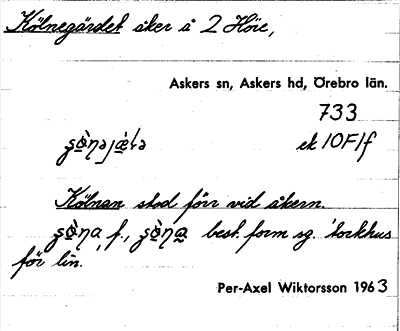 Kölnegärdet åker å 2 Höje,
Askers sn, Askers hd, Örebro län.
733
ek 10F1f
Kölnan stod förr vid åkern.
f., best. form sg. 'torkhus
för lin.
Per-Axel Wiktorsson 1963